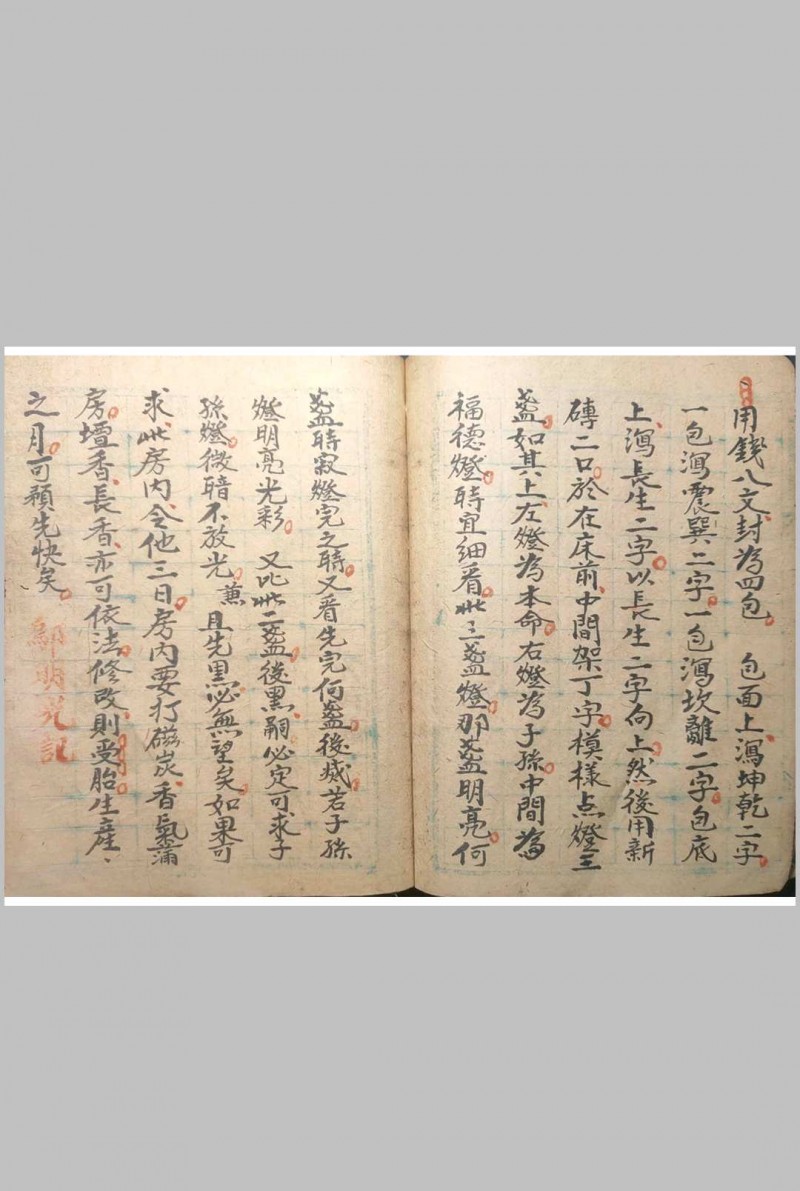 用錢八文封為四包 包面上瀉坤乾二字
一包瀉震巽二字一包瀉坎離二字包底
上瀉長生二字以長生二字向上然後用新
磚二口於在床前中間架丁字模樣点燈三
盞如其上左燈為本命右燈為子孫中間為
福德燈時宜細看此三盞燈那盞明亮何
盞時寂燈完之時又看先完何盞後烕若子孫
燈明亮光彩 又比此二盞後黑嗣必定可求子
孫燈微暗不放光兼且先黑必無望矣如果可
求此房内令他三日房内要打磁炭香氣滿
房壇香長香亦可依法修改則受胎生産、
之月可預先快矣
鄒明光記